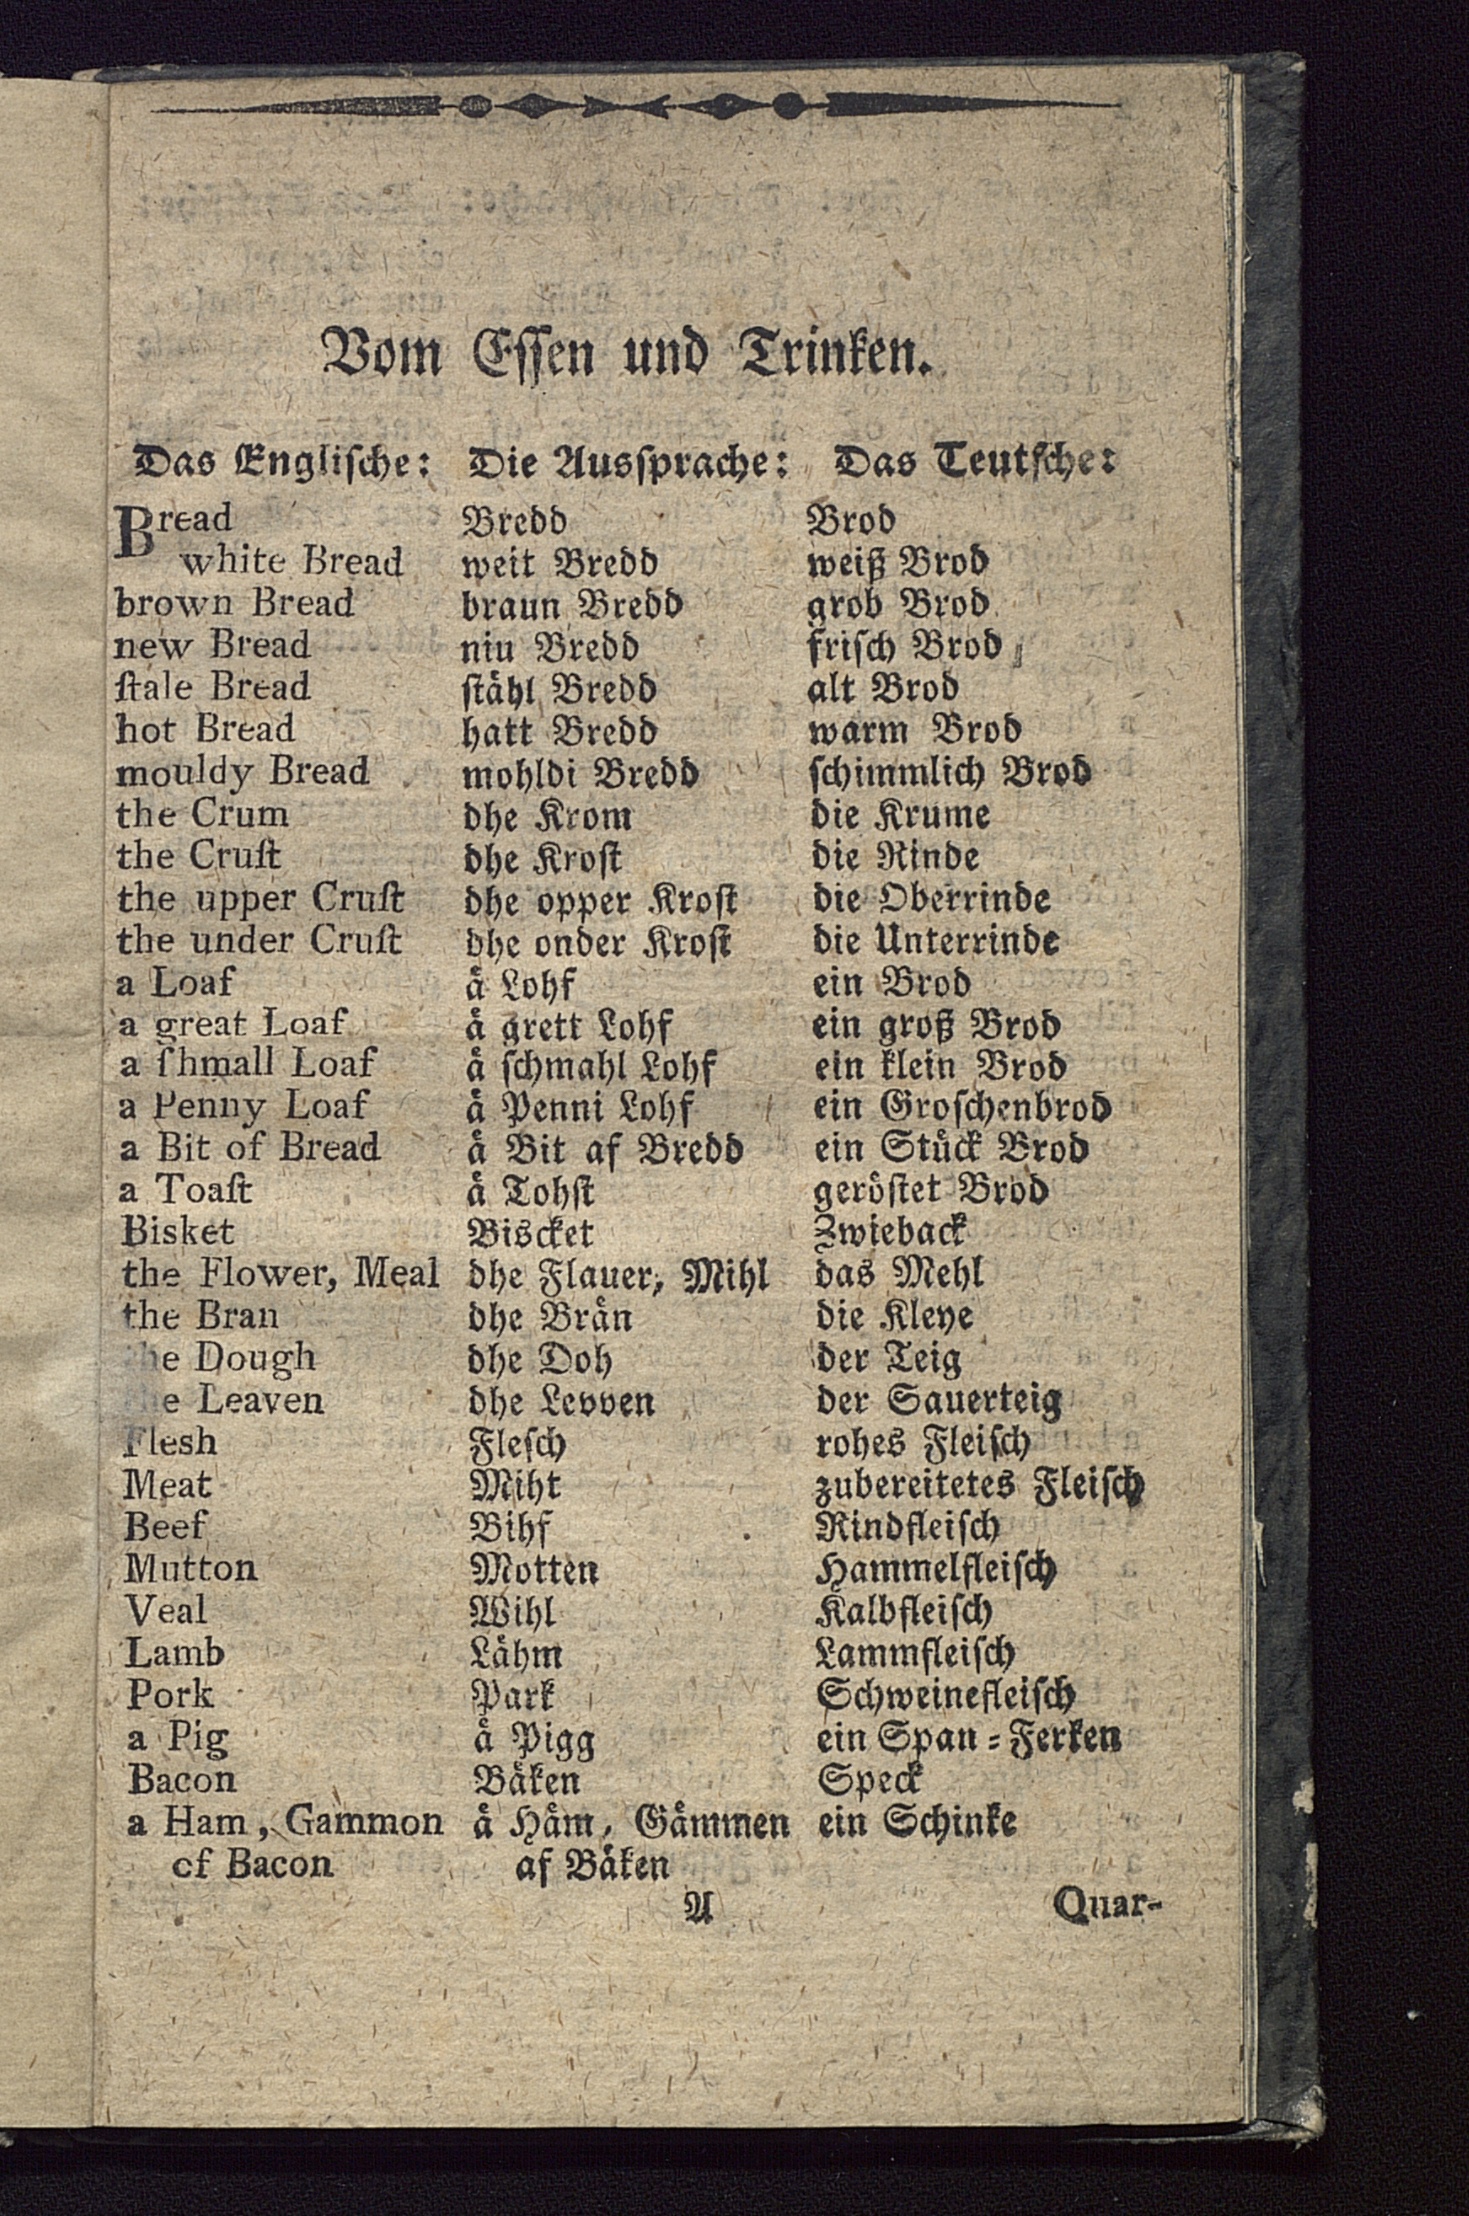 Vom Essen und Trinken.
Das Englische: Die Aussprache: Das Teutsche:
Bread Bredd Brod
white Bread weit Bredd weiß Brod
brown Bread braun Bredd grob Brod
new Bread niu Bredd frisch Brod
stale Bread stähl Bredd alt Brod
hot Bread hatt Bredd warm Brod
mouldy Bread mohldi Bredd schimmlich Brod
the Crum dhe Krom die Krume
the Crust dhe Krost die Rinde
the upper Crust dhe opper Krost die Oberrinde
the under Crust dhe onder Krost die Unterrinde
a Loaf ä Lohf ein Brod
a great Loaf ä grett Lohf ein groß Brod
a shmall Loaf ä schmahl Lohf ein klein Brod
a Penny Loaf ä Penni Lohf ein Groschenbrod
a Bit of Bread ä Bit af Bredd ein Stück Brod
a Toast ä Tohst geröstet Brod
Bisket Biscket Zwieback
the Flower, Meal dhe Flauer, Mihl das Mehl
the Bran dhe Brän die Kleye
the Dough dhe Doh der Teig
the Leaven dhe Levven der Sauerteig
Flesh Flesch rohes Fleisch
Meat Miht zubereitetes Fleisch
Beef Bihf Rindfleisch
Mutton Motten Hammelfleisch
Veal Wihl Kalbfleisch
Lamb Lähm Lammfleisch
Pork Park Schweinefleisch
a Pig ä Pigg ein Span=Ferken
Bacon Bäken Speck
a Ham, Gammon ä Häm, Gämmen ein Schinke
of Bacon af Bäken
A Quar-